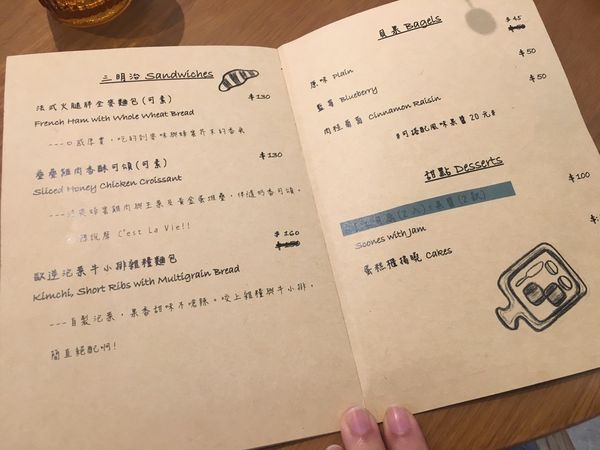 三明治 Sandwiches
法式火腿胖全麥麵包(可素) $130
French Ham with Whole Wheat Bread
---口感厚實，吃的到麥味與蜂蜜芥末的香氣
疊疊雞肉香酥可頌(可素) $130
Sliced Honey Chicken Croissant
蜂蜜雞肉與玉米及黃金蛋堆疊，伴隨奶香可頌，
說聲 C'est La Vie!!
$160
泡菜牛小排雜糧麵包
Kimchi, Short Ribs with Multigrain Bread
---自製泡菜，果香甜味不嗆辣。咬上雜糧與牛小排，
簡直絕配啊!
貝果 Bagels
$45
原味 Plain $50
藍莓 Blueberry $50
肉桂葡萄 Cinnamon Raisin
可搭配風味果醬 20元
甜點 Desserts
(2入)+果醬(2款) $100
Scones with Jam
蛋糕櫃摘曉 Cakes